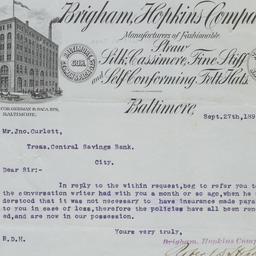 Brigham, Hopkins Compa
Manufacturers of Fashionable
Straw
Silk, Cassimere, Fine Stiff
and Self Conforming Felt Hats.
BALTIMORE
COR. GERMAN & PACA STS.
BALTIMORE.
Baltimore,
Sept. 27th, 189
Mr. Jno. Curlett,
Treas. Central Savings Bank.
City.
Dear Sir:-
In reply to the within request, beg to refer you to
the conversation writer had with you a month or so ago, when he
derstood that it was not necessary to have insurance made paya
to you in case of loss, therefore the policies have all been rene
ed, and are now in our possession.
Yours very truly,
R.D.H.
Brigham, Hopkins Comp